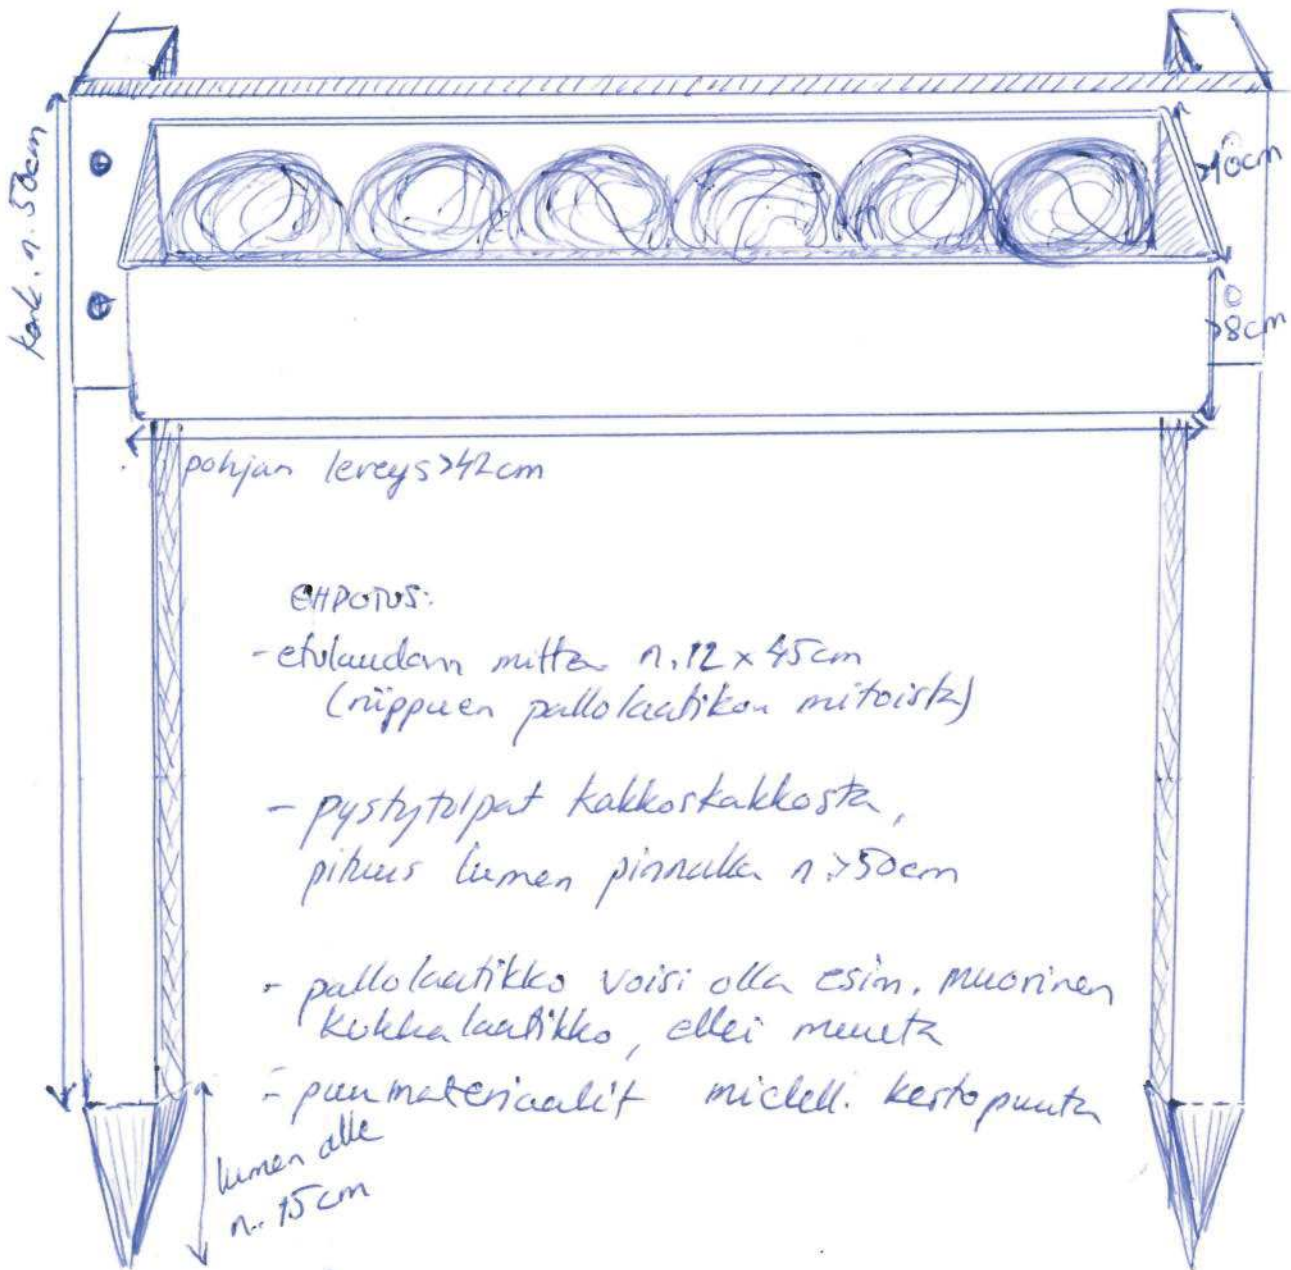 kork. n. 50cm
>10cm
>8cm
pohjan leveys >42cm
EHDOTUS:
- etulaudan mitta n. 12 x 45cm
(riippuen pallolaatikon mitoista)
- pystytolpat kakkoskakkosta,
pituus lumen pinnalla n. >50cm
- pallolaatikko voisi olla esim. muovinen
kukkalaatikko, ellei muuta
- puumateriaalit mieluII. kestopuuta
lumen alle
n. 15cm